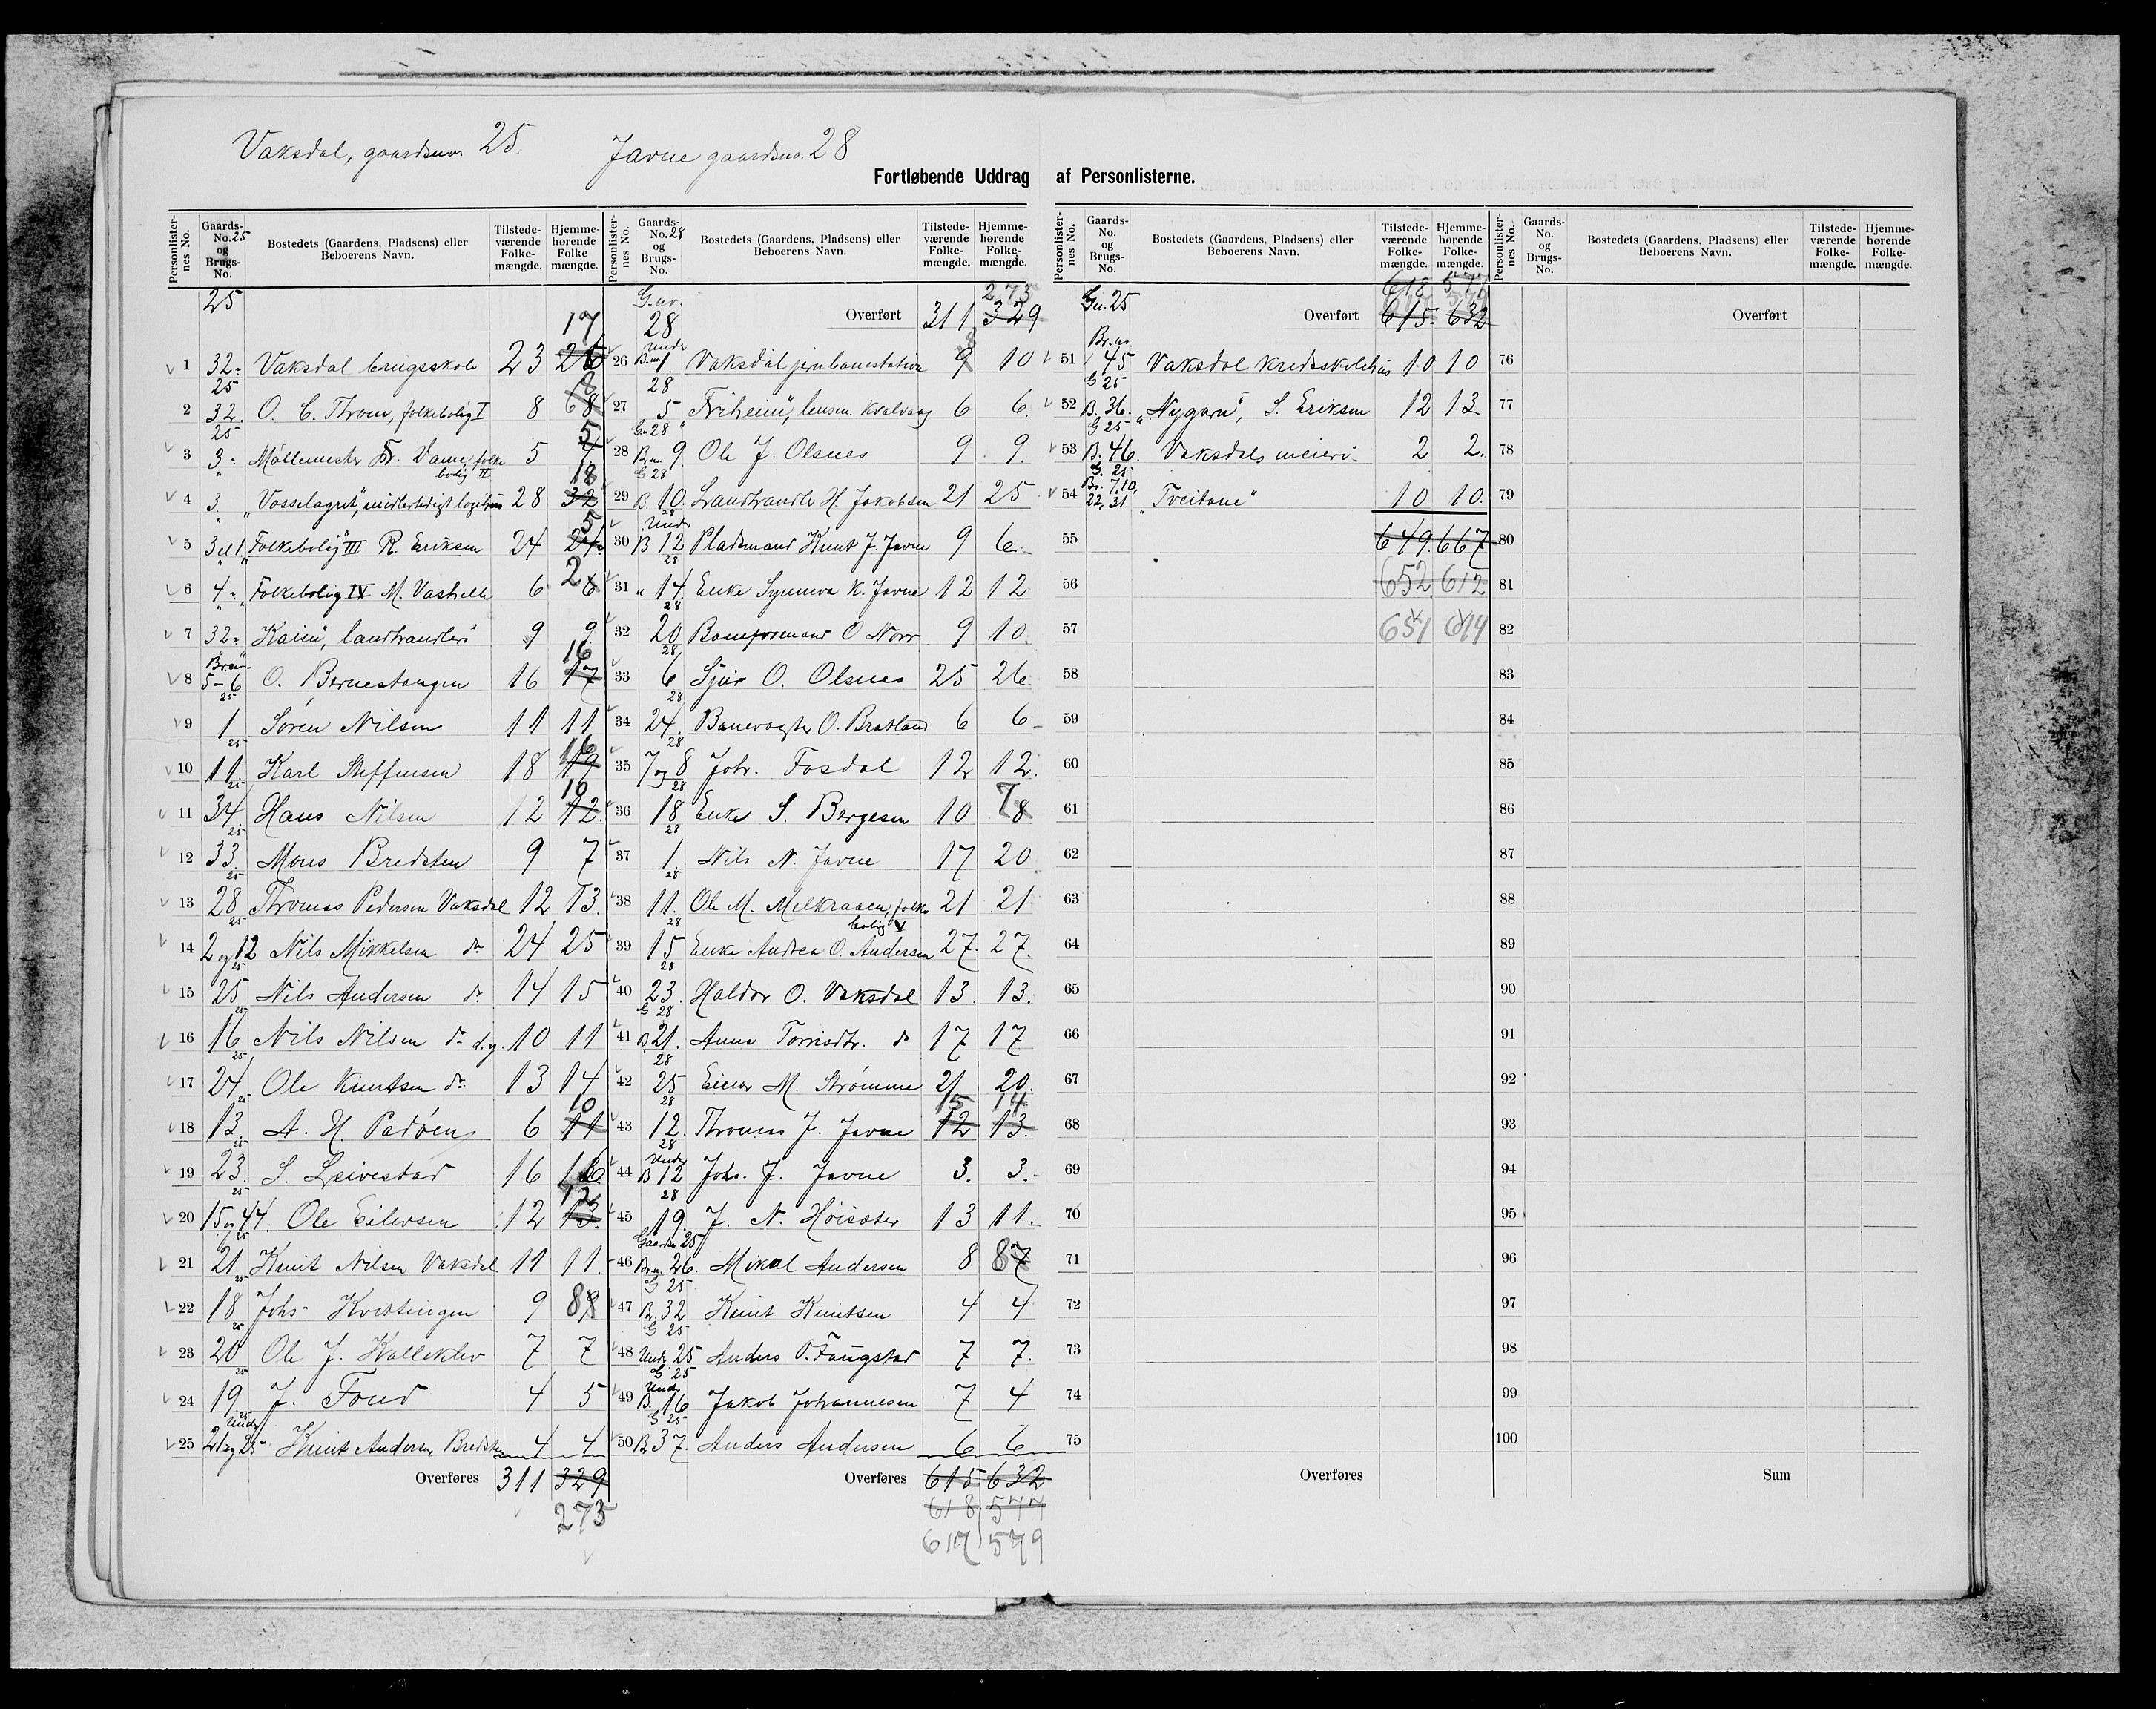 Vaksdal, gaardsno 25. Javne gaardsno. 28
Fortløbende Uddrag af Personlisterne.
Personlister-nes No. Gaards-No. 25 og Brugs-No. Bostedets (Gaardens, Pladsens) eller Beboerens Navn. Tilstede-værende Folke-mængde. Hjemme-hørende Folke mængde.
25
17
1 32 Vaksdal brugsskole 23 26
25 8
2 32. O. C. Thom, folkebolig I 8 68
25 5
3 3 Möllemester Fr. Dame, folke 5 7
bolig II 18
4 3 "Vosselagret", midlertidigt logihus 28 32
5
5 3 el 1 "Folkebolig" III R. Eriksen 24 24
2
6 4 Folkebolig IV M. Vashelle 6 6
7 32 "Kaim", landhandleri 9 9
Br.no 16
8 5-6 O. Bernestangen 16 17
25
9 1 Søren Nilsen 11 11
25 16
10 11 Karl Steffensen 18 19
25 10
11 34 Hans Nilsen 12 12.
25
12 33. Mons Bredsten 9 7
25
13 28 Thomas Pedersen Vaksdal 12 13.
25
14 2 og 12 Nils Mikkelsen do 24 25
25
15 25 Nils Andersen do. 14 15
25
16 16 Nils Nilsen do d.y. 10 11
25
17 24 Ole Knutsen do. 13 14
25 10
18 13. A. H. Padöen 6 11
25
19 23. S. Leivestad 16 16
25 12
20 15 og 44. Ole Eilersen 12 13.
25
21 21 Knut Nilsen Vaksdal 11 11.
25
22 18 Johs Kvittingen 9 8 8
25
23 20 Ole J. Kalleklev 7 7
25
24 19 J. Fond 4 5
25
Under
25 21 og 25 Knut Andersen Bredsten 4 4
Overføres 311 329
273
Personlister-nes No. Gaards-No. 28 og Brugs-No. Bostedets (Gaardens, Pladsens) eller Beboerens Navn. Tilstede-værende Folke-mængde. Hjemme-hørende Folke-mængde.
G.nr. 273
28 Overført 311 329
Under
26 B.no 1 Vaksdal jernbanestation 9 10
28
27 5 "Friheim", lensm. Kvalvaag 6 6.
G. 28
28 B.no 9. Ole J. Olsnes 9 9.
G 28
29 B. 10. Landhandler H. Jakobsen 21 25
28
Under
30 B 12 Pladsmand Knut J. Javne 9 6.
28
31 " 14. Enke Synneva K. Javne 12 12
28
32 20 Baneformand O Norr 9 10.
28
33 6 Sjur O. Olsnes 25 26
28
34 24. Banevogter O. Bratland 6 6
28
35 7 og 8 Joh. Fosdal 12 12.
28 7
36 18 Enke S. Bergesen 10 8
28
37 1. Nils N. Javne 17 20
28
38 11. Ole M. Melkraaen, folke 21 21
28 bolig V
39 15 Enke Andrea O. Andersen 27. 27.
28
40 23. Haldor O. Vaksdal 13. 13.
G 28
41 B 21. Anna Torrisdtr. do 17 17
28
42 25 Einar M. Strømme 21 20.
28 15 14
43 12. Thomas J. Javne 12 13.
28
Under
44 B 12 Johs. J. Javne 3. 3.
28
45 19. J. N. Höisæter 13 11.
Gaardsn 25
46 B.n. 26. Mikal Andersen 8 8 7
G 25
47 B. 32 Knut Knutsen 4 4
G 25
48 Under 25 Anders O. Faugstad 7 7.
G 25
Under
49 B. 16 Jakob Johannesen 7 4
G 25
50 B 37. Anders Andersen 6 6
Overføres 615 632
618 577
617 579
Personlister-nes No. Gaards-No. og Brugs-No. Bostedets (Gaardens, Pladsens) eller Beboerens Navn. Tilstede-værende Folke-mængde. Hjemme-hørende Folke-mængde.
618 577
617 579
Gn. 25 Overført 615. 632
Br.nr
51 45 Vaksdal kredsskolehus 10 10
G 25
52 B. 36. "Nygarn", S. Eriksen 12 13
G 25
53 B. 46. Vaksdals meieri 2 2.
G. 25
Br. 7, 10,
54 22, 31 "Tveitane" 10 10.
55 649. 667
56 652 612
57 651 614
58
59
60
61
62
63
64
65
66
67
68
69
70
71
72
73
74
75
Overføres
Personlister-nes No. Gaards-No. og Brugs-No. Bostedets (Gaardens, Pladsens) eller Beboerens Navn. Tilstede-værende Folke-mængde. Hjemme-hørende Folke-mængde.
Overført
76
77
78
79
80
81
82
83
84
85
86
87
88
89
90
91
92
93
94
95
96
97
98
99
100
Sum